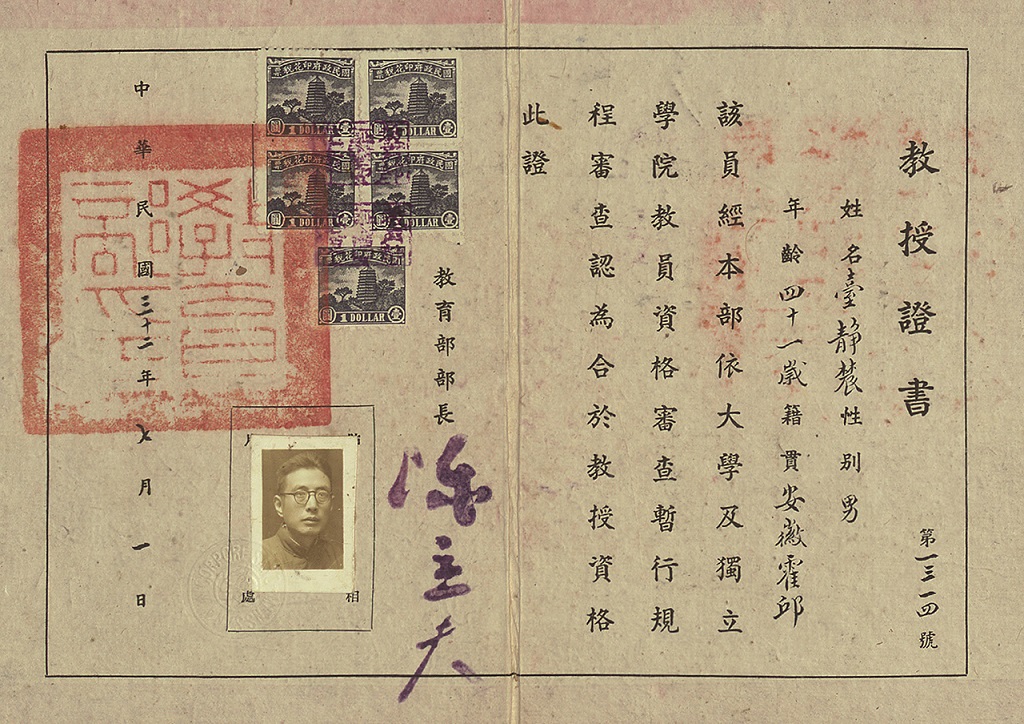 教授證書
第一三一四號
姓名臺靜農性別男
年齡四十一歲籍貫安徽霍邱
該員經本部依大學及獨立
學院教員資格審查暫行規
程審查認為合於教授資格
此證
教育部部長
陳立夫
國民政府印花稅票
壹 1 DOLLAR 圓
國民政府印花稅票
壹 1 DOLLAR 圓
國民政府印花稅票
壹 1 DOLLAR 圓
國民政府印花稅票
壹 1 DOLLAR 圓
國民政府印花稅票
壹 1 DOLLAR 圓
相
處
中華民國三十二年七月一日